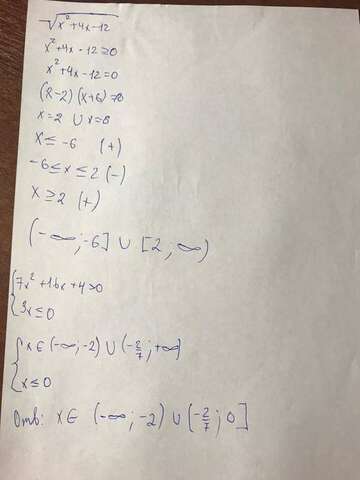 √x²+4x-12
x²+4x-12≥0
x²+4x-12=0
(x-2)(x+6)=0
x=2 ∪ x=6
x≤-6 (+)
-6≤x≤2 (-)
x≥2 (+)
(-∞;-6] ∪ [2;∞)
{7x²+16x+4>0
{3x≤0
{x∈(-∞;-2)∪(-2/7;+∞)
{x≤0
Отв: x∈ (-∞;-2)∪(-2/7;0]